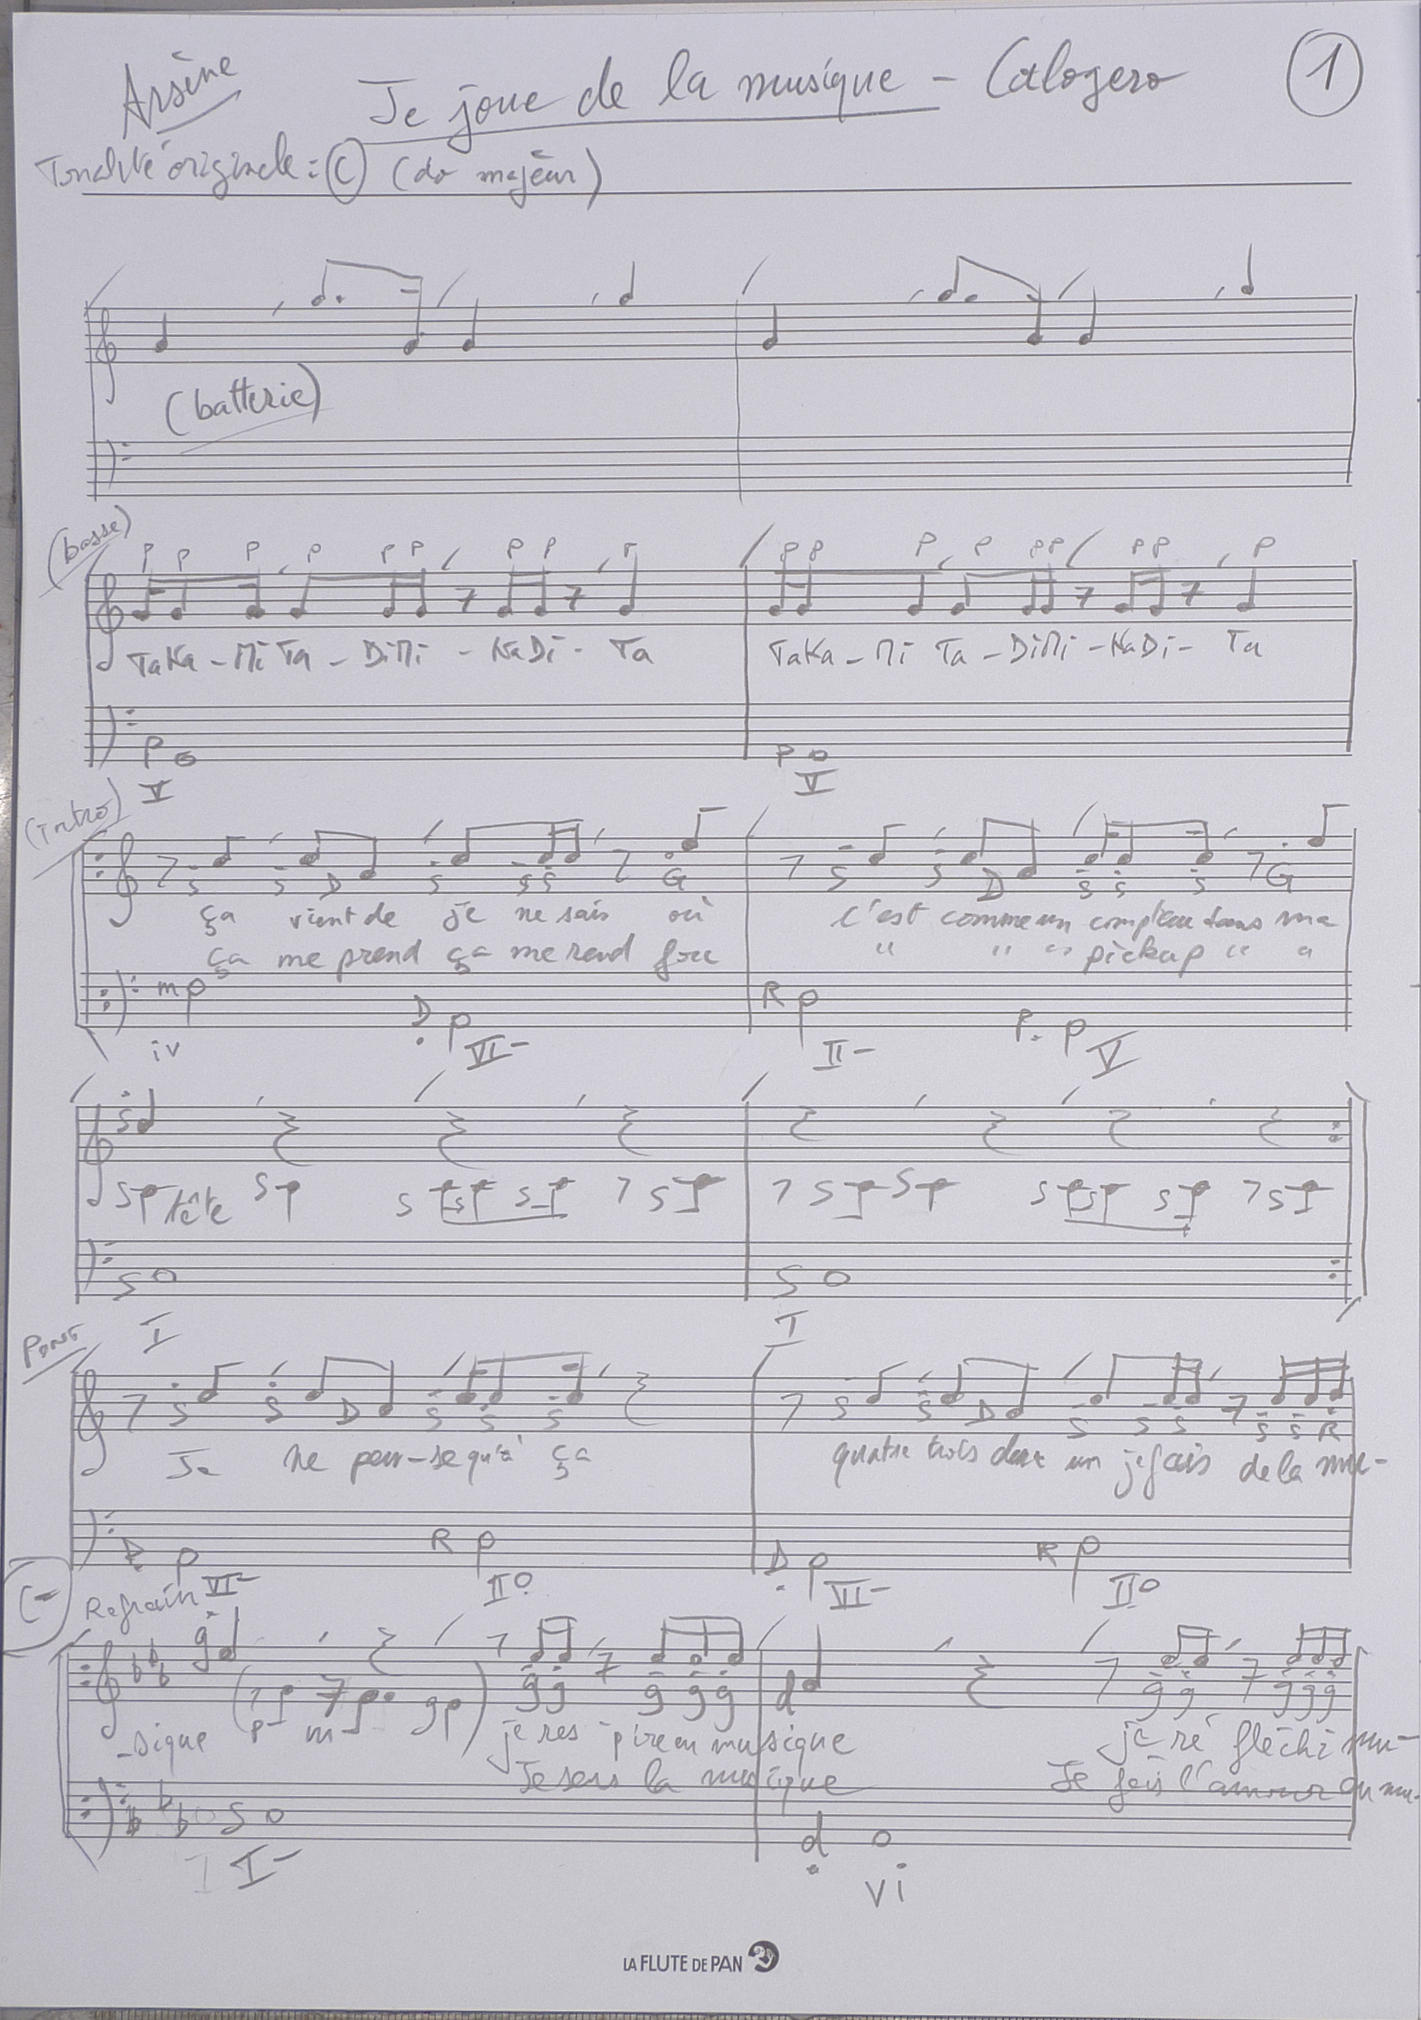 Arsène
Je joue de la musique - Calogero
1
Tonalité originale : C (do majeur)
(batterie)
(basse)
P P P P P P P P P P P P P P P P P P
TaKa - Mi Ta - DiMi - NaDi - Ta TaKa - Mi Ta - DiMi - NaDi - Ta
P P
V V
(intro)
S S D S S S G S S D S S S G
ça vient de je ne sais où c'est comme un compteur dans ma
ça me prend ça me rend fou " " " pickup " "
m D R P
iv VI- II- V
S
S tête S S S S S S S S S S S
S S
I I
Pont
S S D S S S S S D S S S S S R
Je ne pen-se qu'à ça quatre trois deux un je fais de la mu-
R R D R
VI- IIo VI- IIo
C- Refrain
g d
P m g g g g g g g g g g g
-sique je res pire en musique je ré fléchi mu-
Je sens la musique Je fais l'amour en mu-
S d
I- vi
LA FLUTE DE PAN